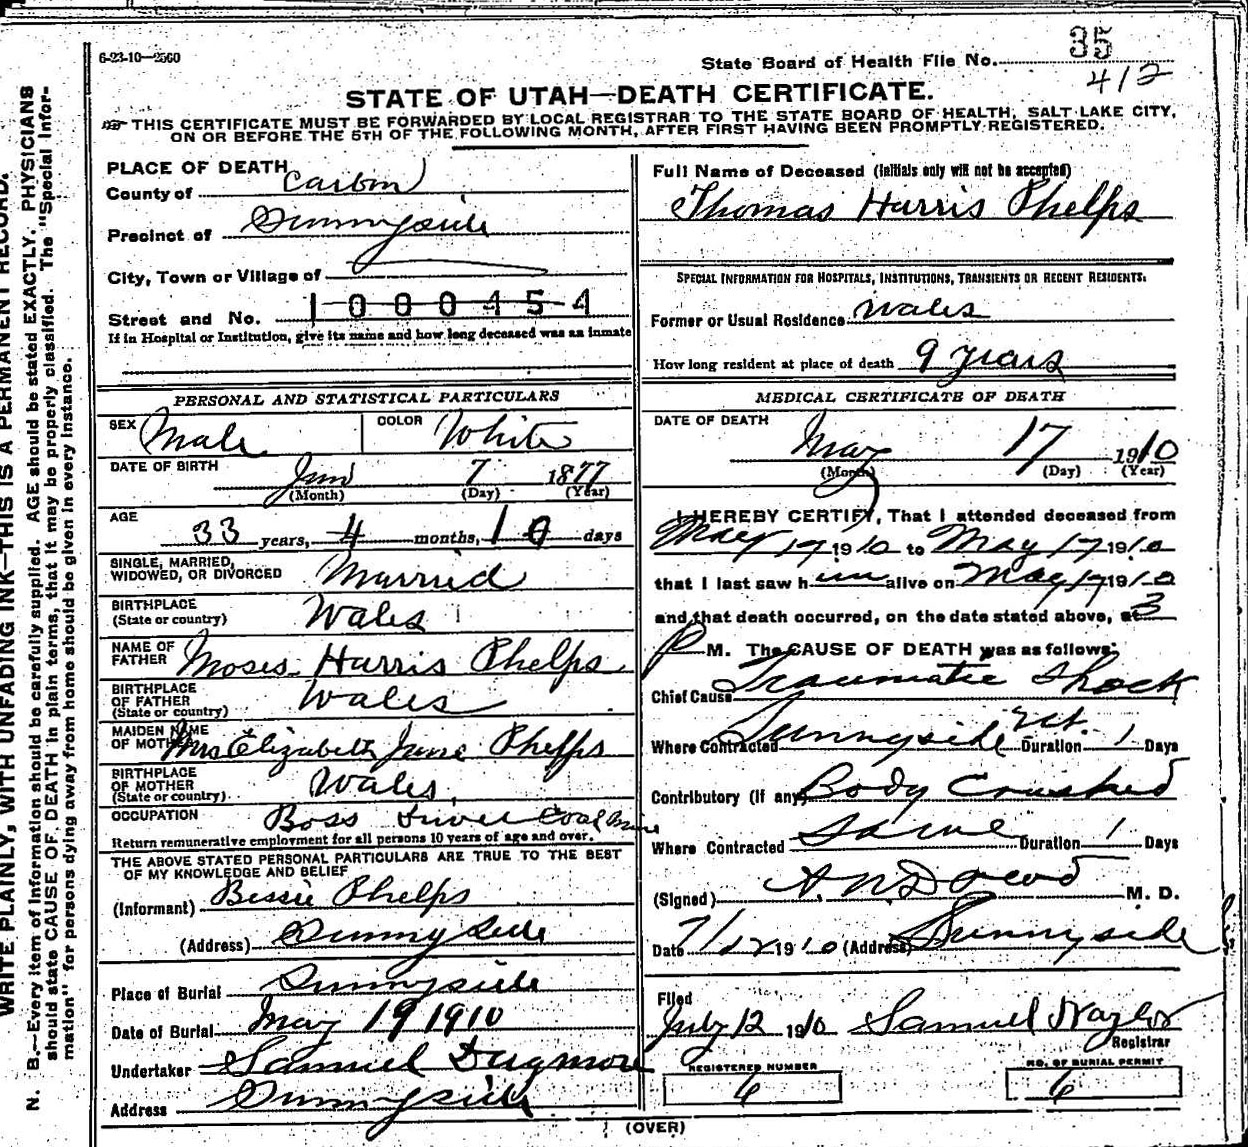 6-23-10—2560
State Board of Health File No. 35
412
STATE OF UTAH—DEATH CERTIFICATE.
THIS CERTIFICATE MUST BE FORWARDED BY LOCAL REGISTRAR TO THE STATE BOARD OF HEALTH, SALT LAKE CITY,
ON OR BEFORE THE 5TH OF THE FOLLOWING MONTH, AFTER FIRST HAVING BEEN PROMPTLY REGISTERED.
WRITE PLAINLY, WITH UNFADING INK—THIS IS A PERMANENT RECORD.
N. B.—Every item of information should be carefully supplied. AGE should be stated EXACTLY. PHYSICIANS
should state CAUSE OF DEATH in plain terms, that it may be properly classified. The "Special Infor-
mation" for persons dying away from home should be given in every instance.
PLACE OF DEATH
County of Carbon
Precinct of Sunnyside
City, Town or Village of
Street and No. 1000454
If in Hospital or Institution, give its name and how long deceased was an inmate
PERSONAL AND STATISTICAL PARTICULARS
SEX Male COLOR White
DATE OF BIRTH Jan 7 1877
(Month) (Day) (Year)
AGE
33 years, 4 months, 10 days
SINGLE, MARRIED,
WIDOWED, OR DIVORCED Married
BIRTHPLACE
(State or country) Wales
NAME OF
FATHER Moses Harris Phelps
BIRTHPLACE
OF FATHER
(State or country) Wales
MAIDEN NAME
OF MOTHER Mrs Elizabeth Jane Phelps
BIRTHPLACE
OF MOTHER
(State or country) Wales
OCCUPATION Boss Driver Coal Mine
Return remunerative employment for all persons 10 years of age and over.
THE ABOVE STATED PERSONAL PARTICULARS ARE TRUE TO THE BEST
OF MY KNOWLEDGE AND BELIEF
(Informant) Bessie Phelps
(Address) Sunnyside
Place of Burial Sunnyside
Date of Burial May 19 1910
Undertaker Samuel Dugmore
Address Sunnyside
Full Name of Deceased (Initials only will not be accepted)
Thomas Harris Phelps
SPECIAL INFORMATION FOR HOSPITALS, INSTITUTIONS, TRANSIENTS OR RECENT RESIDENTS.
Former or Usual Residence Wales
How long resident at place of death 9 years
MEDICAL CERTIFICATE OF DEATH
DATE OF DEATH
May 17 1910
(Month) (Day) (Year)
I HEREBY CERTIFY, That I attended deceased from
May 17 1910 to May 17 1910
that I last saw him alive on May 17 1910
and that death occurred, on the date stated above, at 3
P M. The CAUSE OF DEATH was as follows:
Chief Cause Traumatic Shock
Where Contracted Sunnyside Ut. Duration 1 Days
Contributory (If any) Body Crushed
Where Contracted Same Duration 1 Days
(Signed) A. W. Dowd M. D.
Date 7/12 1910 (Address) Sunnyside
Filed
July 12 1910 Samuel Naylor
Registrar
REGISTERED NUMBER
6
NO. OF BURIAL PERMIT
6
(OVER)